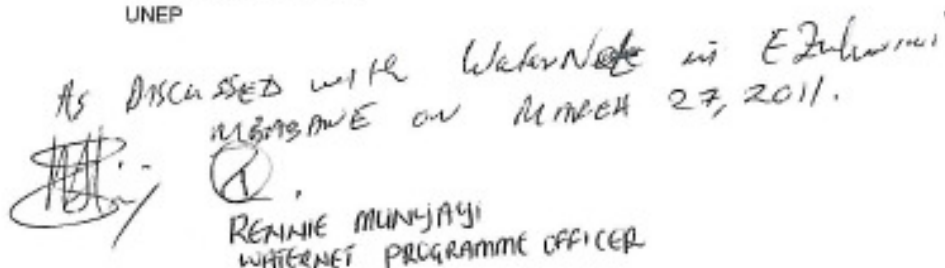 UNEP
As DISCUSSED with WaterNet in EZulwini
MBABANE on MARCH 27, 2011.
RENNIE MUNYAYI
WATERNET PROGRAMME OFFICER